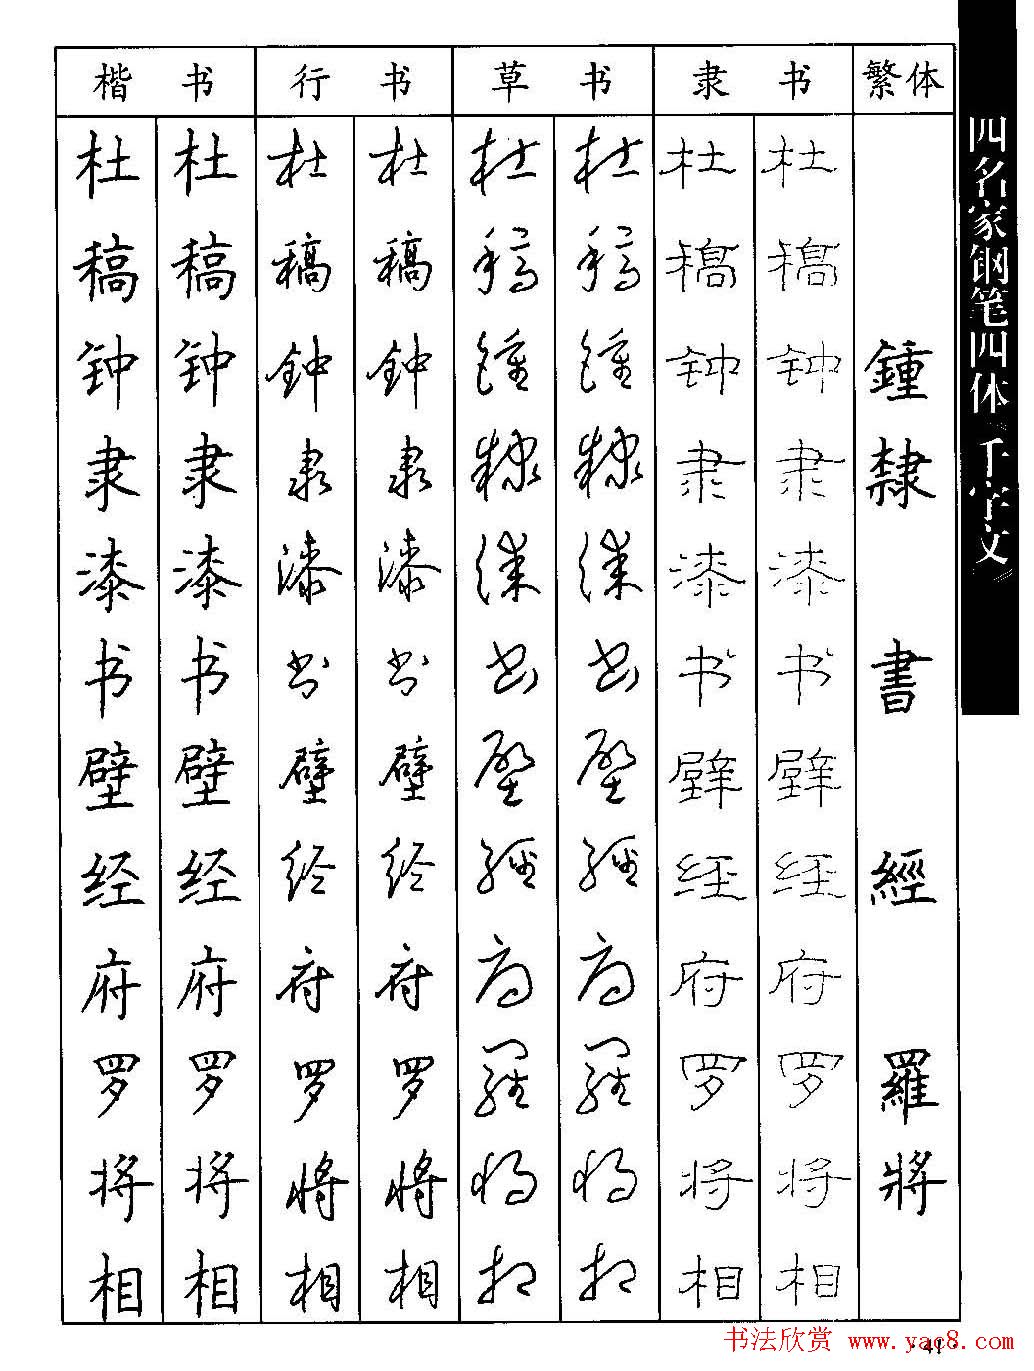 楷书 行书 草书 隶书 繁体
杜 杜 杜 杜 杜 杜 杜 杜
稿 稿 稿 稿 稿 稿 稿 稿
钟 钟 鈡 鈡 鍾 鍾 钟 钟 鍾
隶 隶 隶 隶 隸 隸 隶 隶 隸
漆 漆 漆 漆 漆 漆 漆 漆
书 书 书 书 书 书 书 书 書
壁 壁 壁 壁 壁 壁 壁 壁
经 经 经 经 經 經 经 经 經
府 府 府 府 府 府 府 府
罗 罗 罗 罗 羅 羅 罗 罗 羅
将 将 将 将 将 将 将 将 將
相 相 相 相 相 相 相 相
四名家钢笔四体《千字文》
书法欣赏 www.yac8.com
·41·